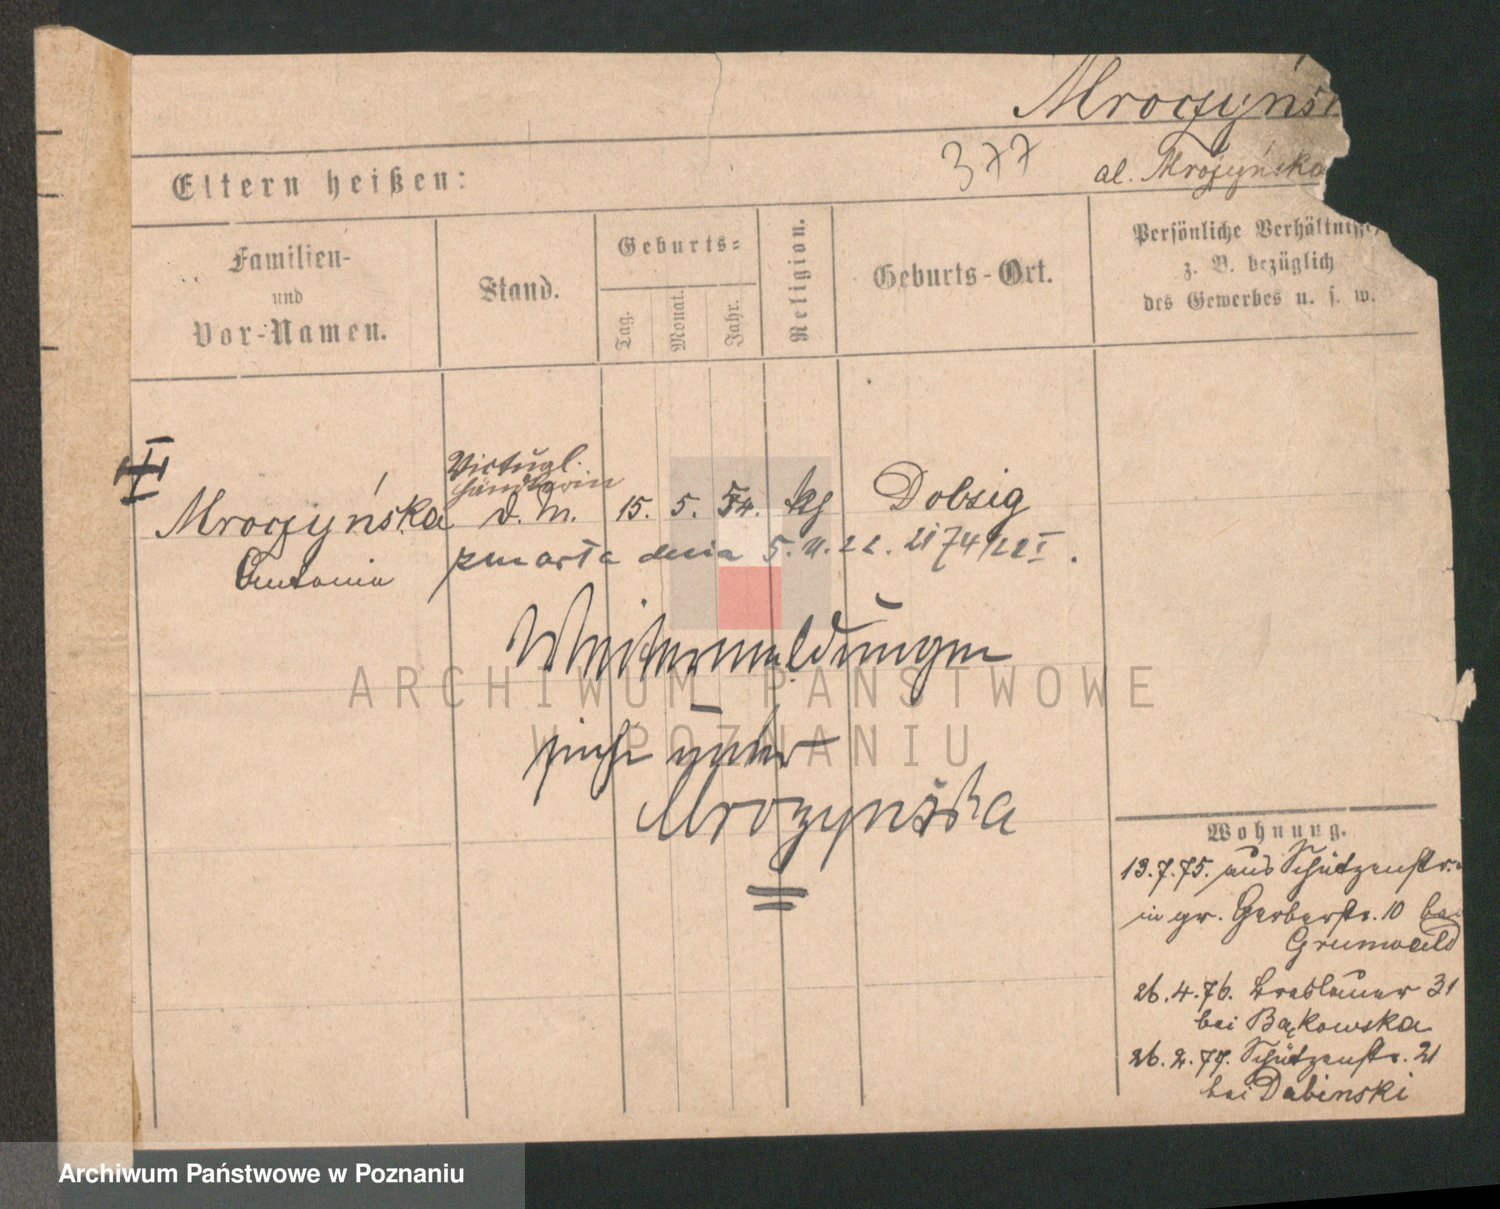 Mroczyńs
377
al. Mrożyńska
Eltern heißen:
Familien-
und
Vor-Namen.
Stand.
Geburts-
Tag.
Monat.
Jahr.
Religion.
Geburts-Ort.
Persönliche Verhältnisse
z. B. bezüglich
des Gewerbes u. s. w.
Mroczyńska
Antonia
händlerin
d. M.
15. 5. 54. kg Dobsig
zmarła dnia 5. 11. 22. 2174/22 I.
Weitermeldungen
siehe unter
Mrozynska
ARCHIWUM PAŃSTWOWE
W POZNANIU
Wohnung.
13.7.75. aus Schützenstr.
in gr. Gerberstr. 10 bei
Grunwald
26.4.76. Breslauer 31
bei Bąkowska
26.2.77. Schützenstr. 21
bei Dabinski
Archiwum Państwowe w Poznaniu